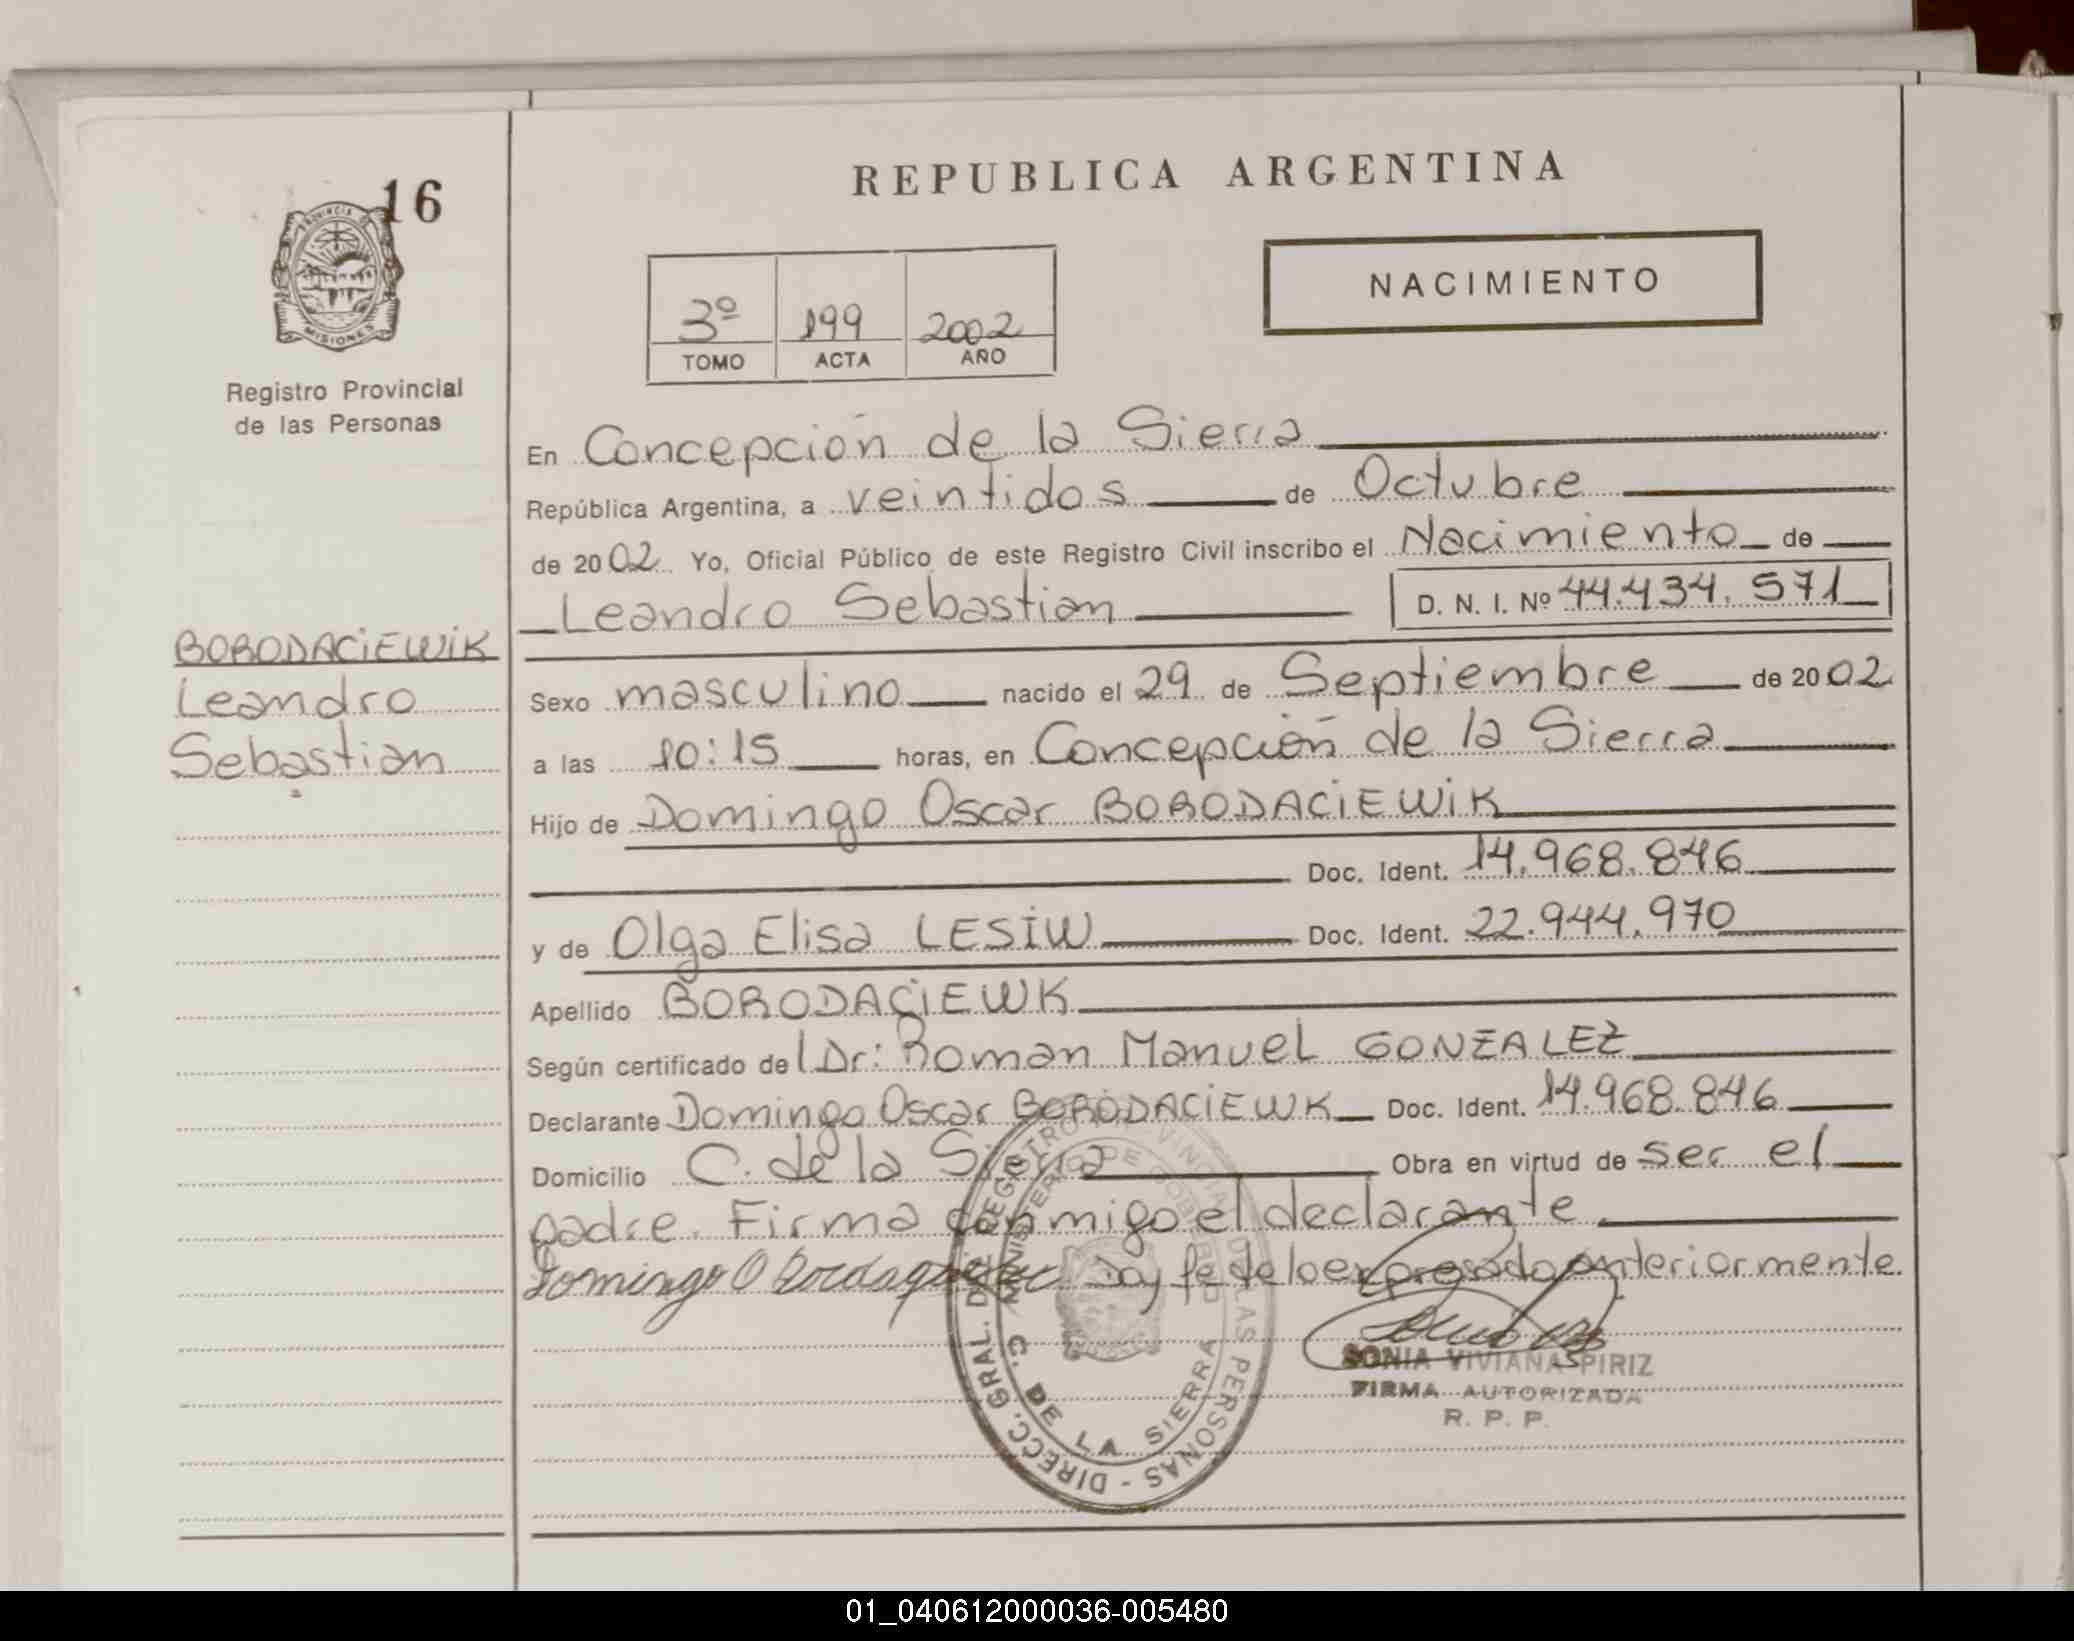 16
PROVINCIA DE
MISIONES
Registro Provincial
de las Personas
BORODACiEWiK
Leandro
Sebastian
REPUBLICA ARGENTINA
3º 199 2002
TOMO ACTA AÑO
NACIMIENTO
En Concepción de la Sierra
República Argentina, a veintidos de Octubre
de 2002 Yo, Oficial Público de este Registro Civil inscribo el Nacimiento de
Leandro Sebastian D. N. I. Nº 44.434.571
Sexo masculino nacido el 29 de Septiembre de 2002
a las 10:15 horas, en Concepción de la Sierra
Hijo de Domingo Oscar BORODACiEWiK
Doc. Ident. 14.968.846
y de Olga Elisa LESiW Doc. Ident. 22.944.970
Apellido BORODACiEWK
Según certificado del Dr: Roman Manuel GONZALEZ
Declarante Domingo Oscar BORODACiEWK Doc. Ident. 14.968.846
Domicilio C. de la Sierra Obra en virtud de ser el
padre. Firma conmigo el declarante
Domingo O Doy fe de lo expresado anteriormente.
DIRECC. GRAL. DEL REGISTRO PROVINCIAL DE LAS PERSONAS -
MINISTERIO DE GOBIERNO
C. DE LA SIERRA
SONIA VIVIANA PIRIZ
FIRMA AUTORIZADA
R. P. P.
01_040612000036-005480